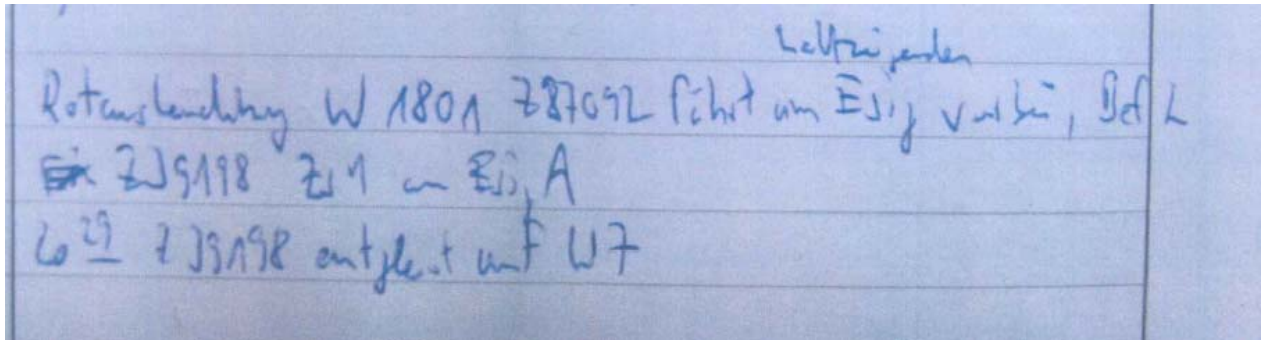 haltzeigenden
Rotausleuchtung W 1801 Z87092 fährt am Esig vorbei, Bef L
Z39198 Zs1 an Esig A
6 29 Z 39198 entgleist auf W7